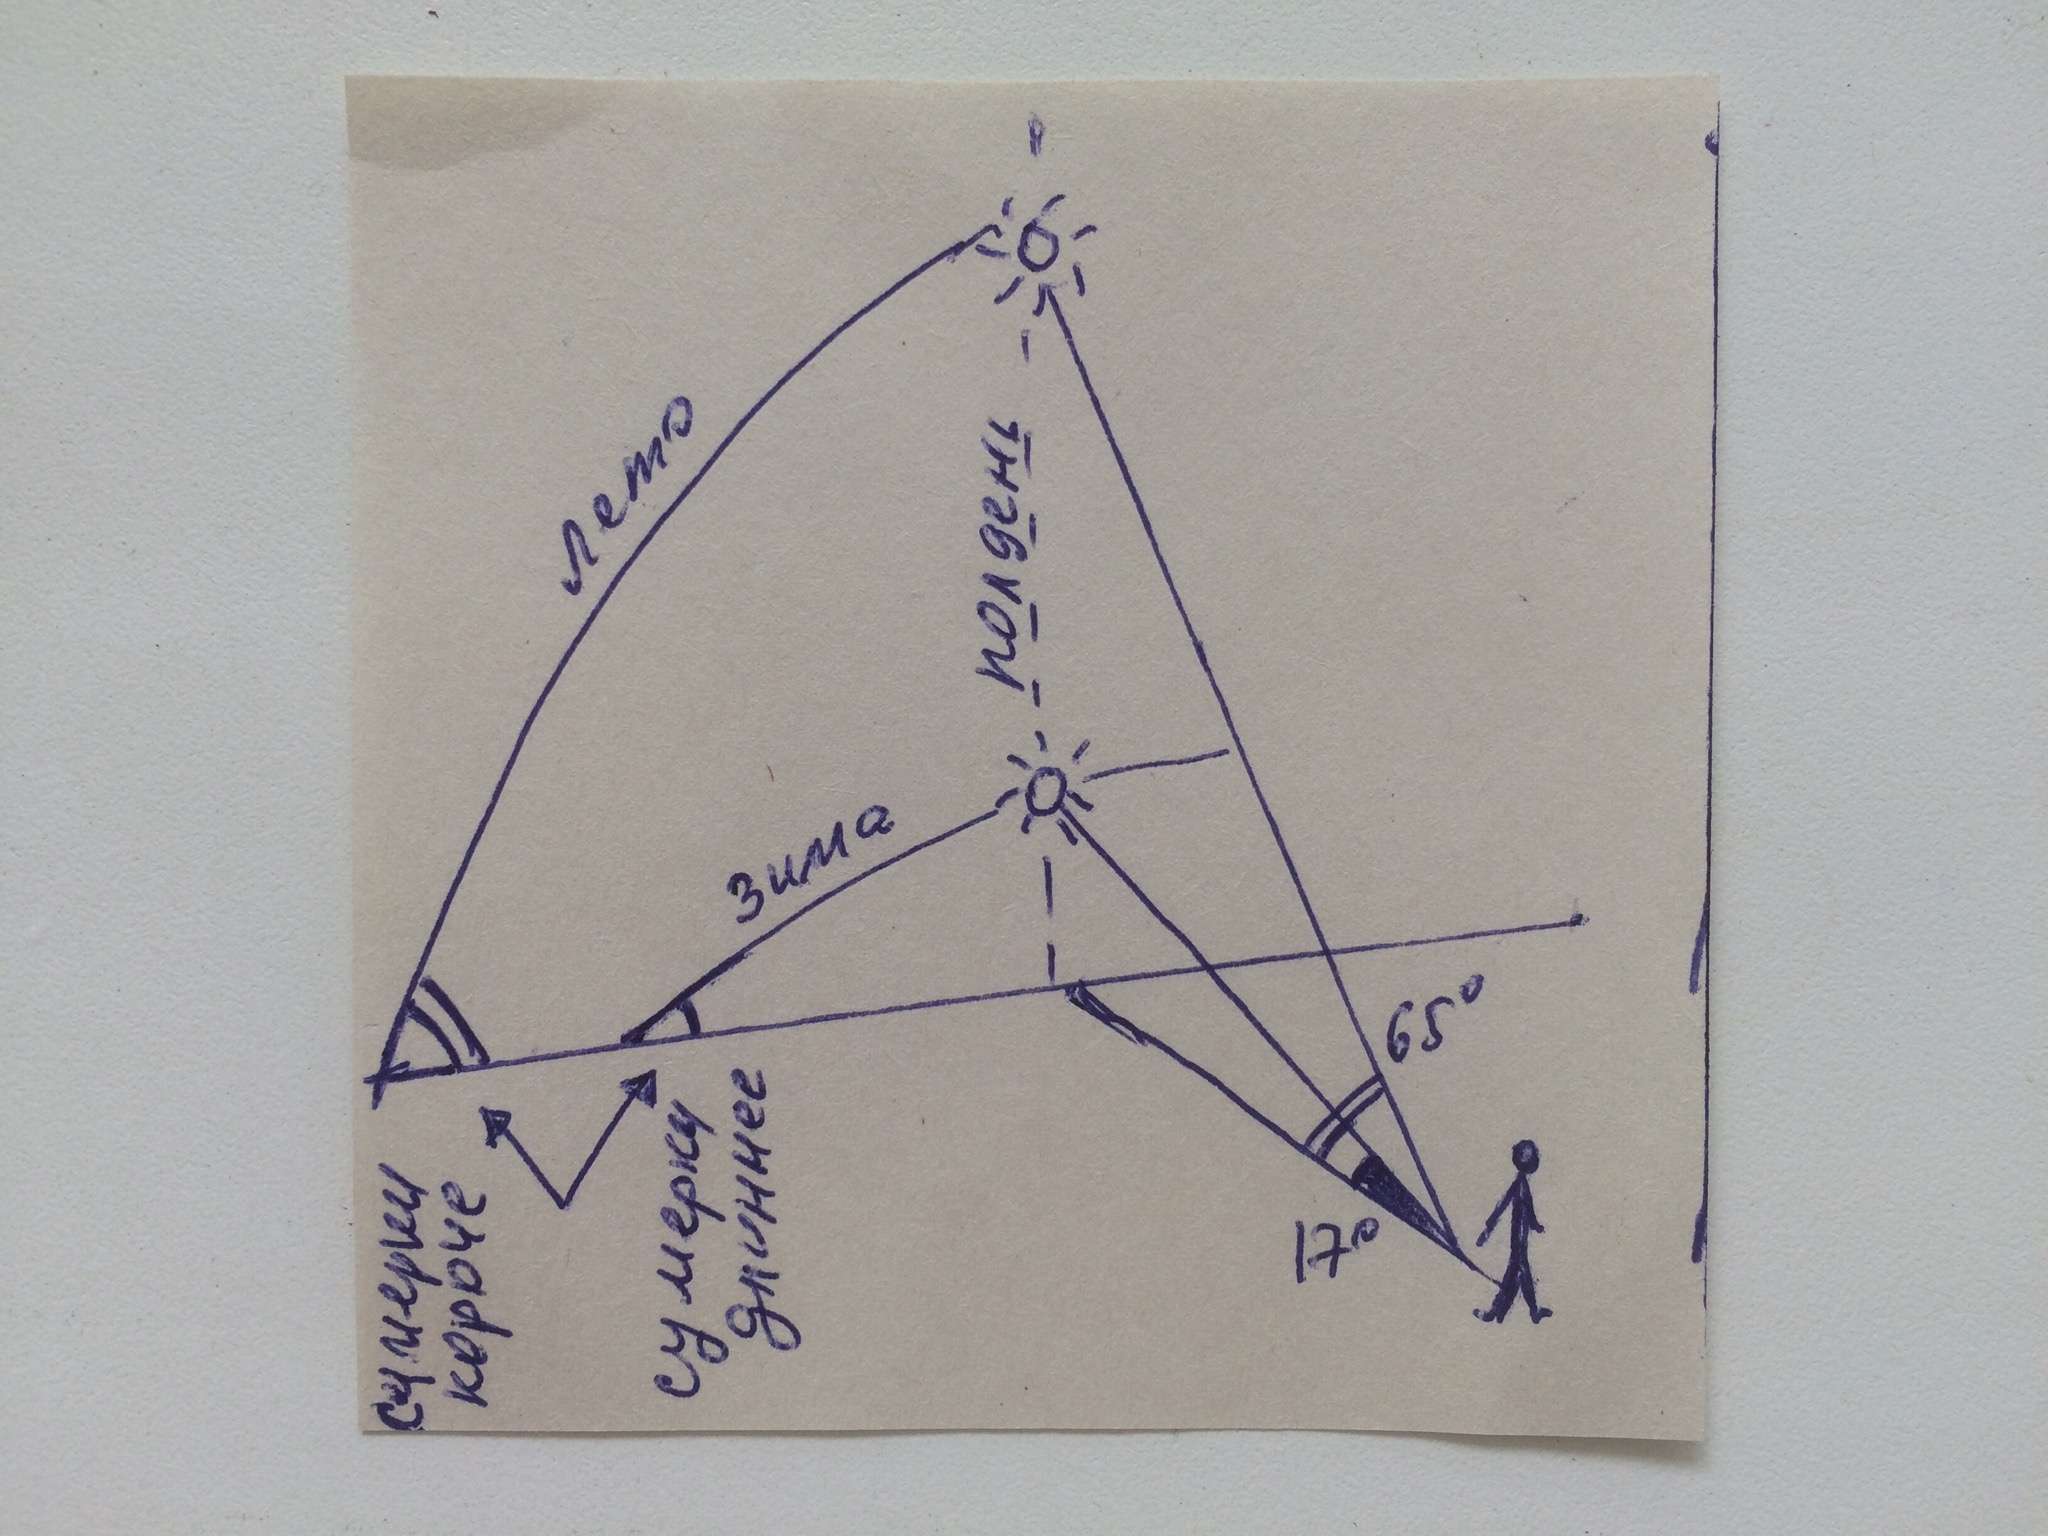 лето
полдень
зима
65°
17°
сумерки
короче
сумерки
длиннее